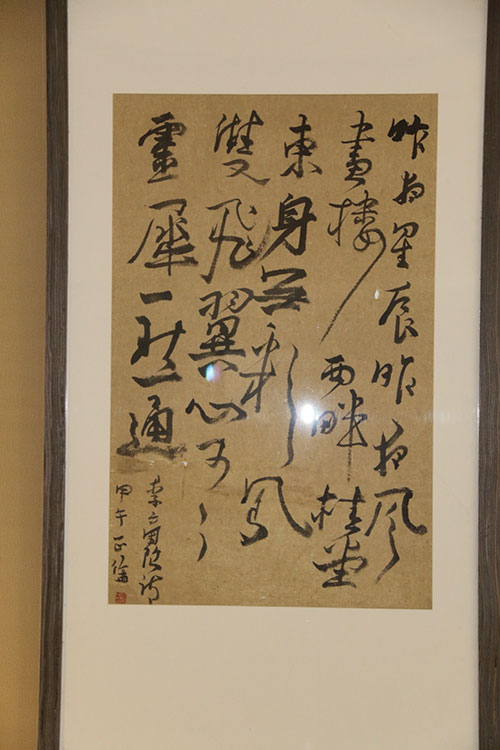 昨夜星辰昨夜風
畫樓西畔桂堂
東身無彩鳳
雙飛翼心有
靈犀一點通
李商隱詩
甲午正